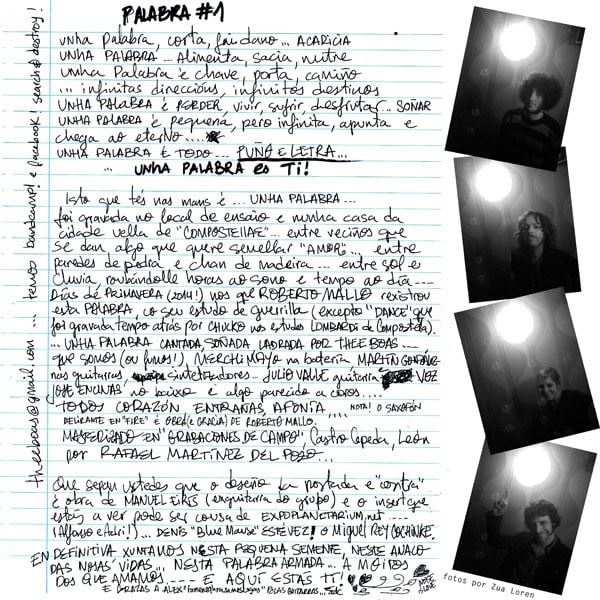 PALABRA #1
UNHA PALABRA, CORTA, fai dano... ACARICIA
UNHA PALABRA... Alimenta, sacia, nutre
UNHA PALABRA é chave, porta, camiño
... infinitas direccións, infinitos destinos
UNHA PALABRA é PERDER, vivir, sufrir, desfrutar... SOÑAR
UNHA PALABRA é pequena, pero infinita, apunta e
chega ao eterno....
UNHA PALABRA É TODO... PUÑO E LETRA...
... UNHA PALABRA es Ti!
Isto que tés nas mans é ... UNHA PALABRA ...
foi gravada no local de ensaio e nunha casa da
cidade vella de "COMPOSTELLAE"... entre veciños que
se dan, algo que quere semellar "AMOR"... entre
paredes de pedra e chan de madeira... entre sol e
chuvia, roubándolle horas ao sono e tempo ao día ---
DÍAS DE PRIMAVERA (2014!) nos que ROBERTO MALLO rexistrou
esta PALABRA, co seu estudo de guerrilla (excepto "DANCE" que
foi gravada tempo atrás por CHUCKO nos estudo LOMBARDI de Compostela).
... UNHA PALABRA CANTADA, SOÑADA LADRADA POR THEE BOAS ---
que somos (ou fumos!), MERCHI MAYO na batería MARTÍN GONZÁLEZ
nas guitarras sintetizadores... JULIO VALLE guitarra VOZ
JOSE ENCINAS no baixo e algo parecido a coros....
TODOS CORAZÓN ENTRAÑAS, AFONÍA .... NOTA! O SAXOFÓN
DELIRANTE EN "FIRE" É OBRA (E GRACIA) DE ROBERTO MALLO.
MASTERIZADO EN "GRABACIONES DE CAMPO" Castro Cepeda, León
por RAFAEL MARTÍNEZ DEL POZO...
Que sepan ustedes que o deseño da portada e "contra"
é obra de MANUEL EIRÍS (exguitarra do grupo) e o insert que
estás a ver pode ser cousa de EXPOPLANETARIUM.net ---
(Alfonso e Adri!) ... DENÍS "Blue Mause" ESTÉVEZ! O MIGUEL REY
EN DEFINITIVA XUNTAMOS NESTA PEQUENA SEMENTE, NESTE ANACO
DAS NOSAS VIDAS... NESTA PALABRA ARMADA... A MOITOS
DOS QUE AMAMOS ---- E AQUÍ ESTAS TI!
E GRAZAS A ALEX POLAS GUITARRAS...
theeboas@gmail.com ... temos bandcamp! e facebook! search & destroy!
fotos por Zua Loren